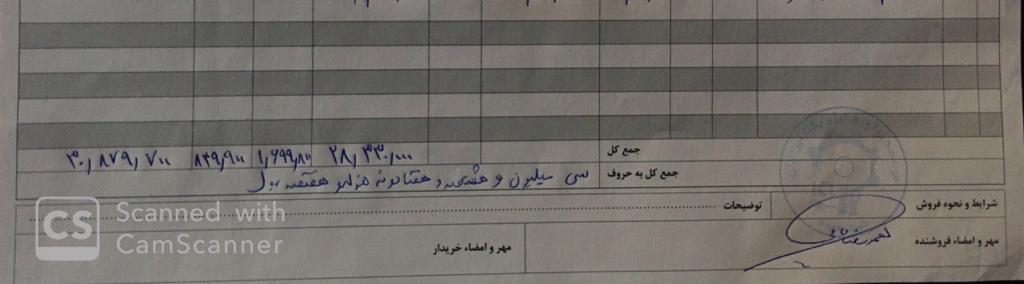 جمع کل ۲۸,۳۳۰,۰۰۰ ۱,۶۹۹,۸۰۰ ۸۴۹,۹۰۰ ۳۰,۸۷۹,۷۰۰
جمع کل به حروف سی میلیون و هشتصد و هفتاد و نه هزار و هفتصد ریال
شرایط و نحوه فروش
توضیحات
مهر و امضاء فروشنده
مهر و امضاء خریدار
CS Scanned with
CamScanner